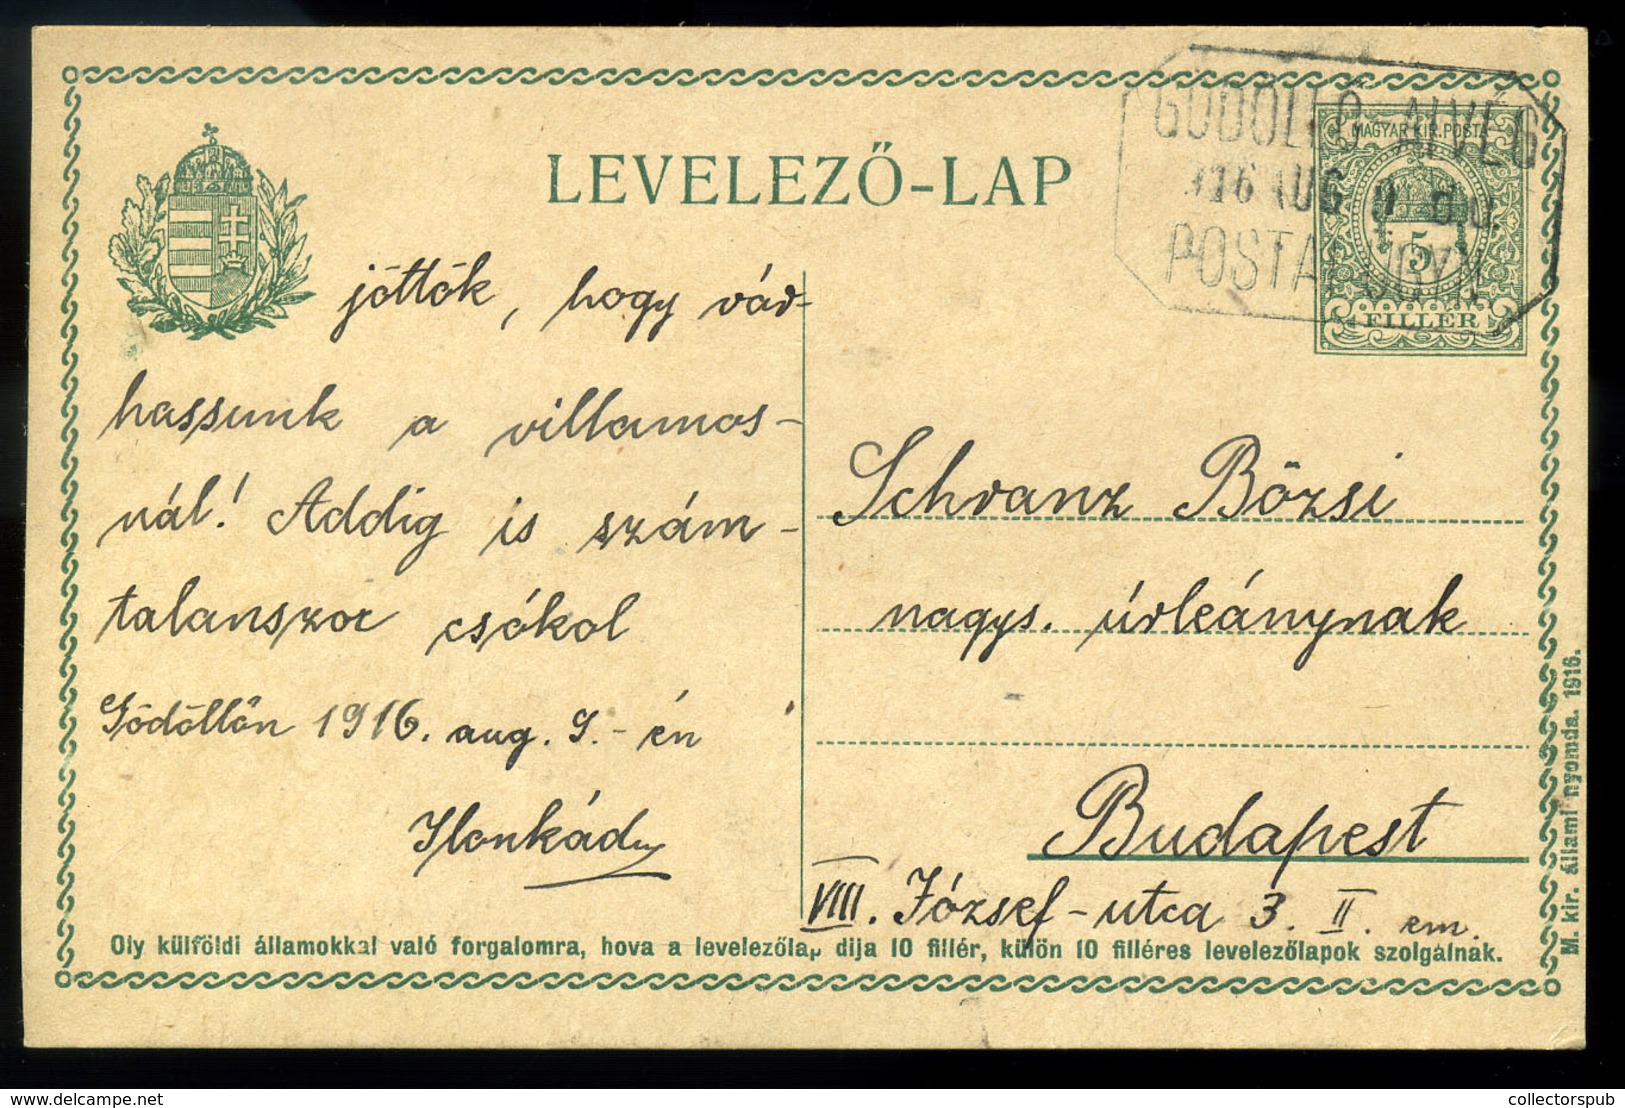 LEVELEZŐ-LAP
GÖDÖLLŐ ALVÉG
916 AUG 9
POSTAI ÜGYN
MAGYAR KIR. POSTA
5
FILLÉR
jöttök, hogy vár-
hassunk a villamos-
nál! Addig is szám-
talanszor csókol
Gödöllőn 1916. aug. 9.-én
Ilonkád
Schranz Bözsi
nagys. úrleánynak
Budapest
VIII. József-utca 3. II. em.
Oly külföldi államokkal való forgalomra, hova a levelezőlap dija 10 fillér, külön 10 filléres levelezőlapok szolgálnak.
M. kir. állami nyomda. 1916.
Hungary
collectorspub